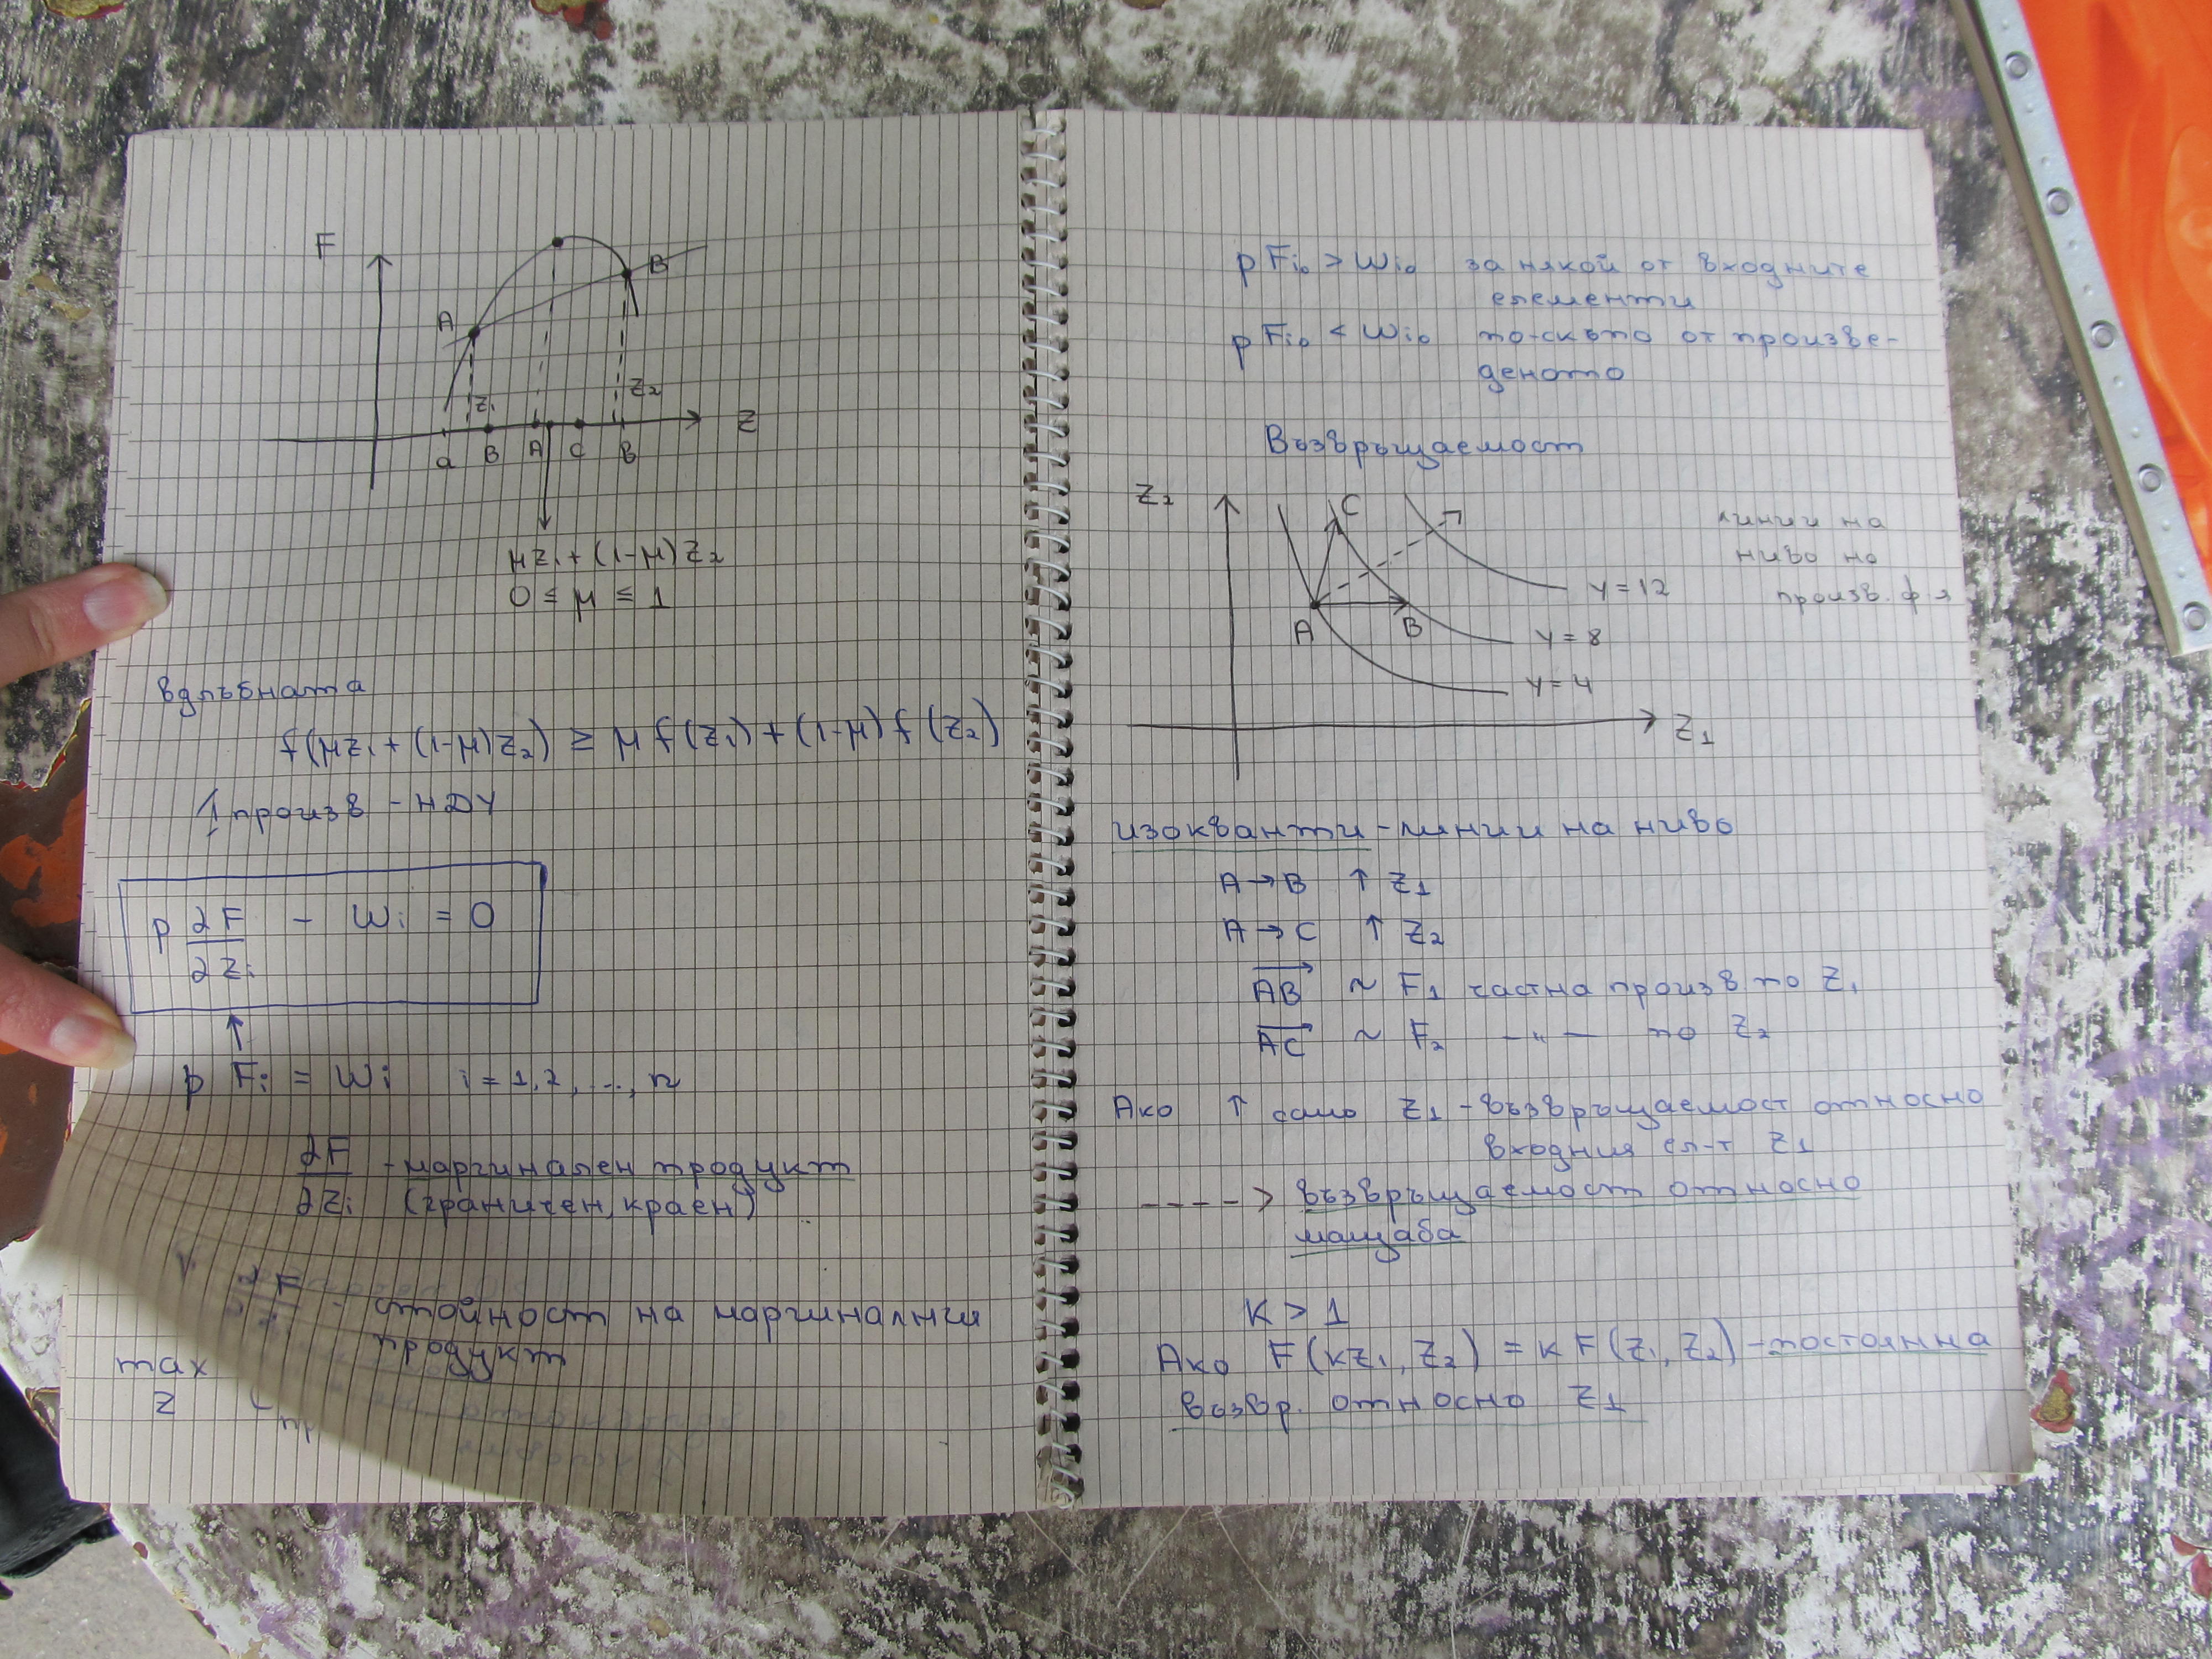 F
A
B
z₁
z₂
z
a B A C B
μz₁ + (1-μ)z₂
0 ≤ μ ≤ 1
вдлъбната
f(μz₁ + (1-μ)z₂) ≥ μ f(z₁) + (1-μ) f(z₂)
1 произв - НДУ
p ∂F/∂zᵢ - wᵢ = 0
p Fᵢ = wᵢ i = 1, 2, ..., n
∂F/∂zᵢ - маргинален продукт
(граничен, краен)
- стойност на маргиналния
продукт
max
z
p Fi₀ > wi₀ за някой от входните
елементи
p Fi₀ < wi₀ по-скъпо от произве-
деното
Възвръщаемост
z₂
C
линии на
ниво на
произв. ф-я
y = 12
A
B
y = 8
y = 4
z₁
изокванти - линии на ниво
A → B ↑ z₁
A → C ↑ z₂
AB ~ F₁ частна произв по z₁
AC ~ F₂ -"- по z₂
Ако ↑ само z₁ - възвръщаемост относно
входния ел-т z₁
----> възвръщаемост относно
мащаба
K > 1
Ако F(kz₁, z₂) = k F(z₁, z₂) - постоянна
възвр. относно z₁